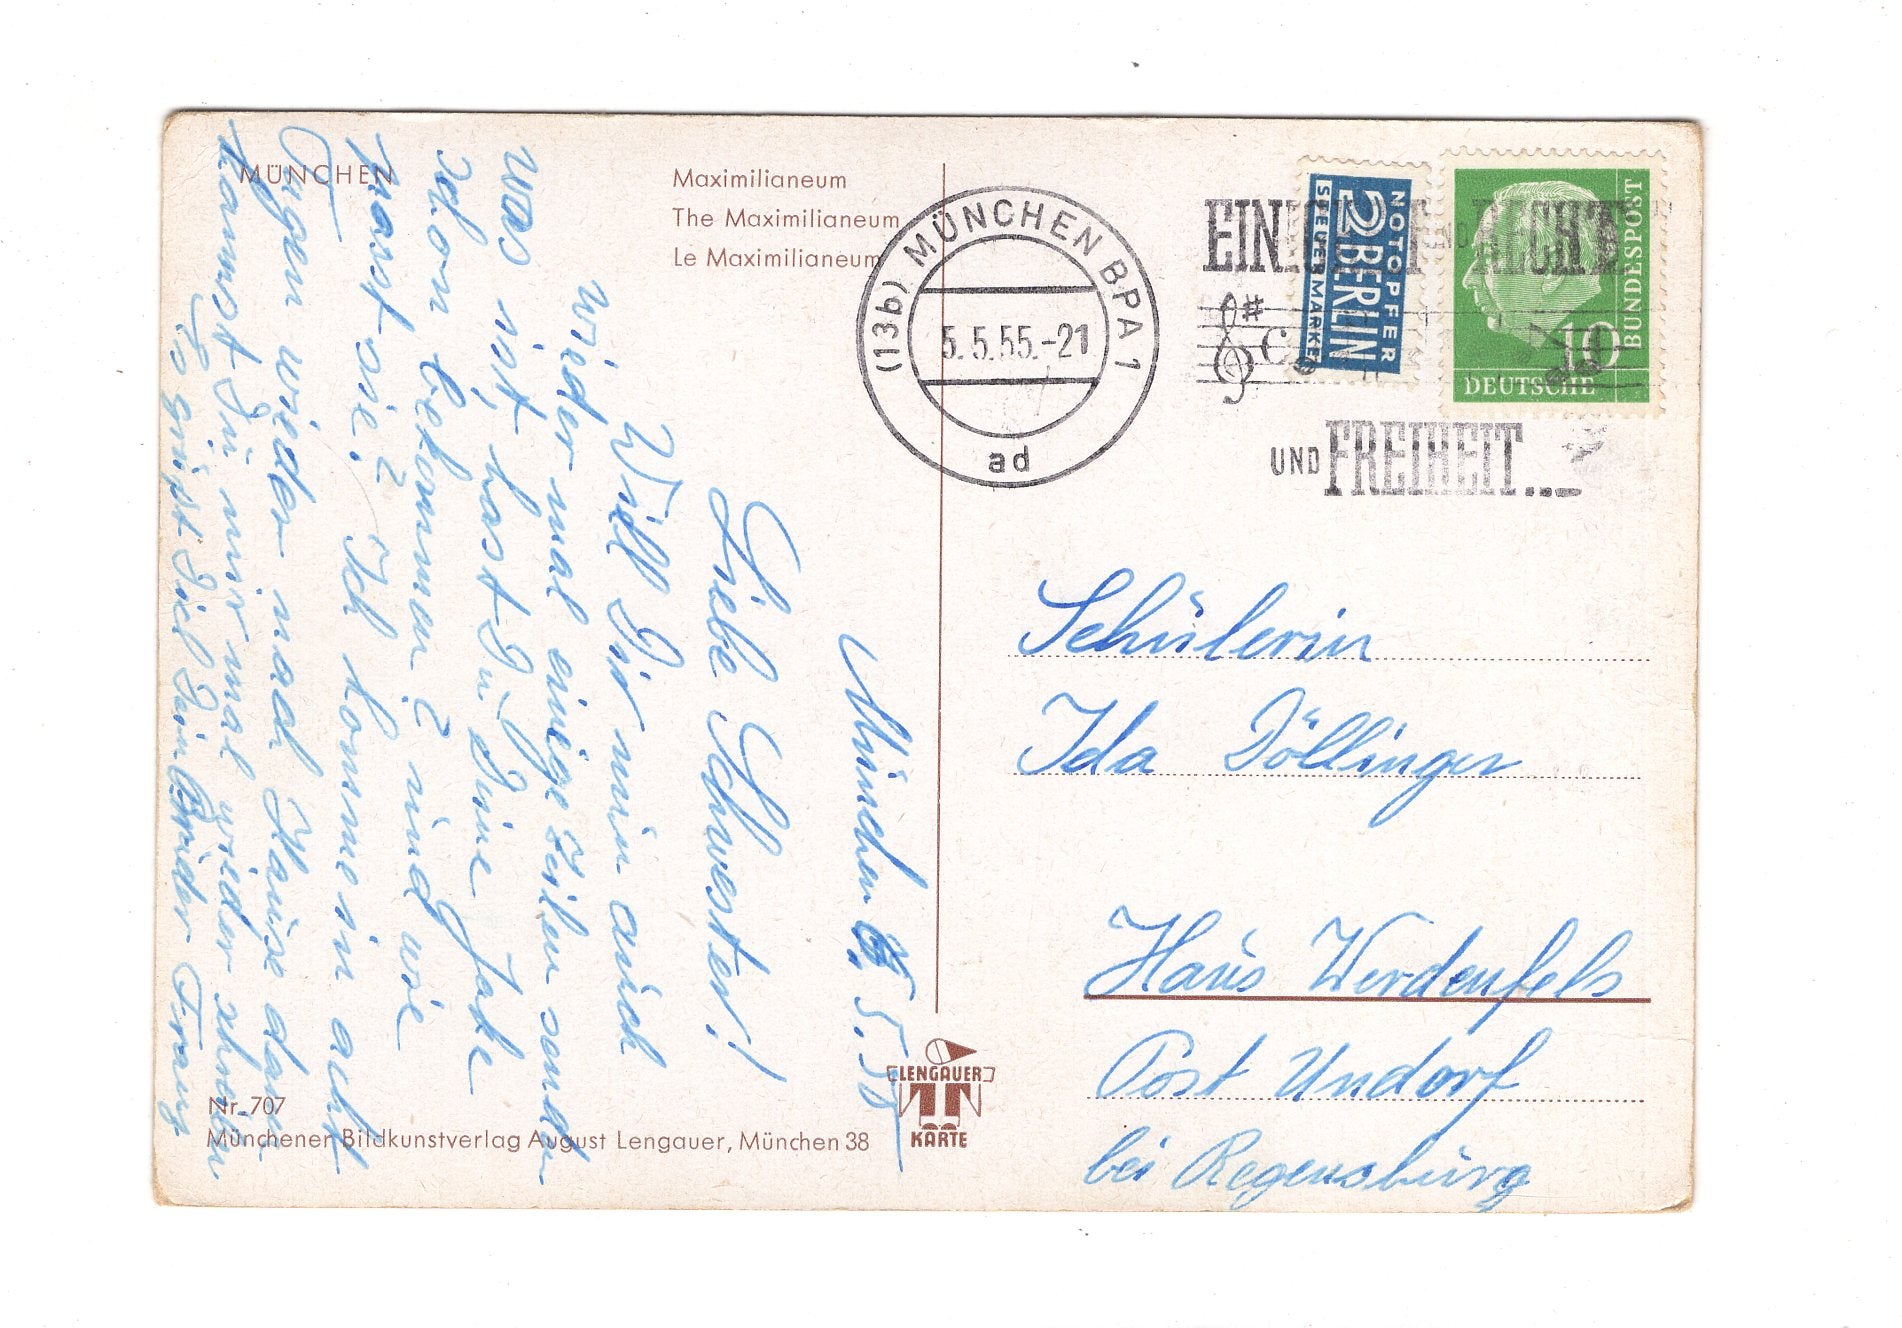 MÜNCHEN
Maximilianeum
The Maximilianeum
Le Maximilianeum
(13b) MÜNCHEN BPA 1
5.5.55.-21
ad
EINIGKEIT UND RECHT
UND FREIHEIT...
NOTOPFER
2 BERLIN
STEUERMARKE
DEUTSCHE
BUNDESPOST
10
München 5.5.55
Liebe Schwester!
Will Dir nun auch
wieder mal einige Zeilen senden
was ist, hast Du Deine Jacke
schon bekommen? und wie
passt sie? Ich komme in acht
Tagen wieder nach Hause dann
kannst Du mir mal wieder schreiben
Es grüsst Dich Dein Bruder Franz
Schülerin
Ida Döllinger
Haus Werdenfels
Post Undorf
bei Regensburg
Nr. 707
Münchener Bildkunstverlag August Lengauer, München 38
LENGAUER
KARTE